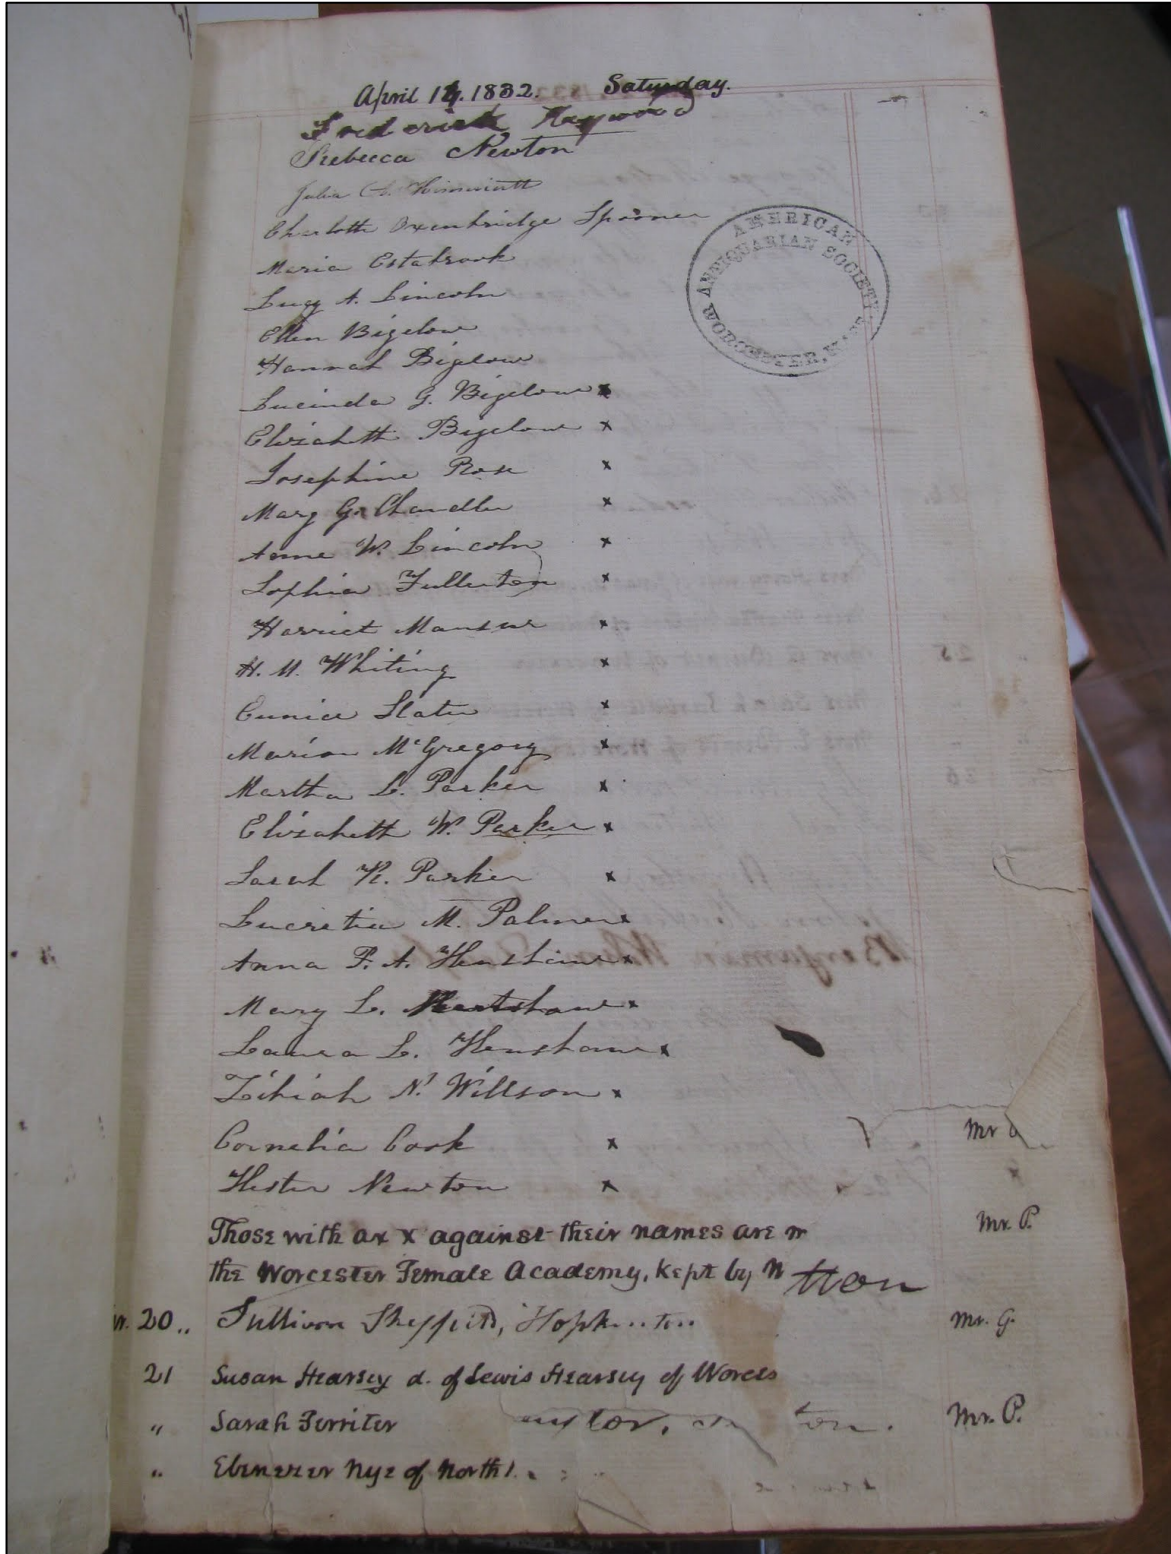 April 14. 1832. Saturday.
Frederick Haywood
Rebecca Newton
Julia
Charlotte Oxenbridge Spooner
Maria Estabrook
Lucy A. Lincoln
Ellen Bigelow
Hannah Bigelow
Lucinda G. Bigelow x
Elizabeth Bigelow x
Josephine Rose x
Mary G. Chandler x
Anne W. Lincoln x
Sophia Fullerton x
Harriet Mansur x
H. M. Whiting x
Eunice Slater x
Marion McGregory x
Martha L. Parker x
Elizabeth W. Parker x
Sarah R. Parker x
Lucretia M. Palmer x
Anna P. A. Henshaw x
Mary L. Henshaw x
Laura L. Henshaw x
Zibiah N. Willson x
Cornelia Cook x Mr
Hester Newton x x
Those with an x against their names are Mr. P.
the Worcester Female Academy, kept by
20 „ Sullivan Mr. G.
21 Susan Hearsey d. of Lewis Hearsey of Worces
„ Sarah Ferriter Mr. P.
„ Ebenezer Nye of North
AMERICAN ANTIQUARIAN SOCIETY
WORCESTER, MASS